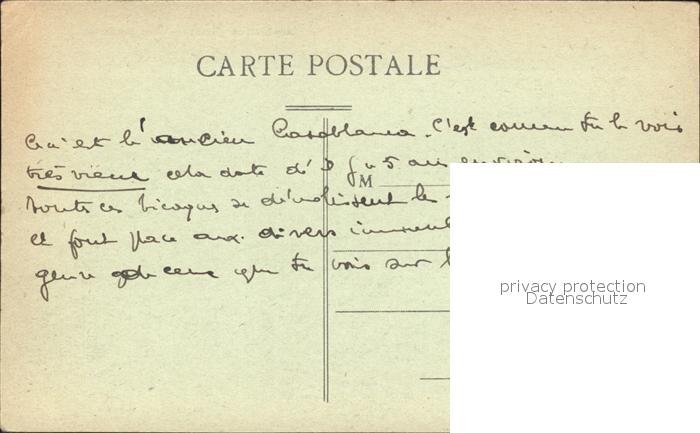 CARTE POSTALE
Ceci est l'ancien Casablanca. C'est comme tu le vois
très vieux cela date d'il y a 5 ans environ
M
toutes ces bicoques se démolissent les
et font place aux divers immeubl
genre de ceux que tu vois sur l
privacy protection
Datenschutz